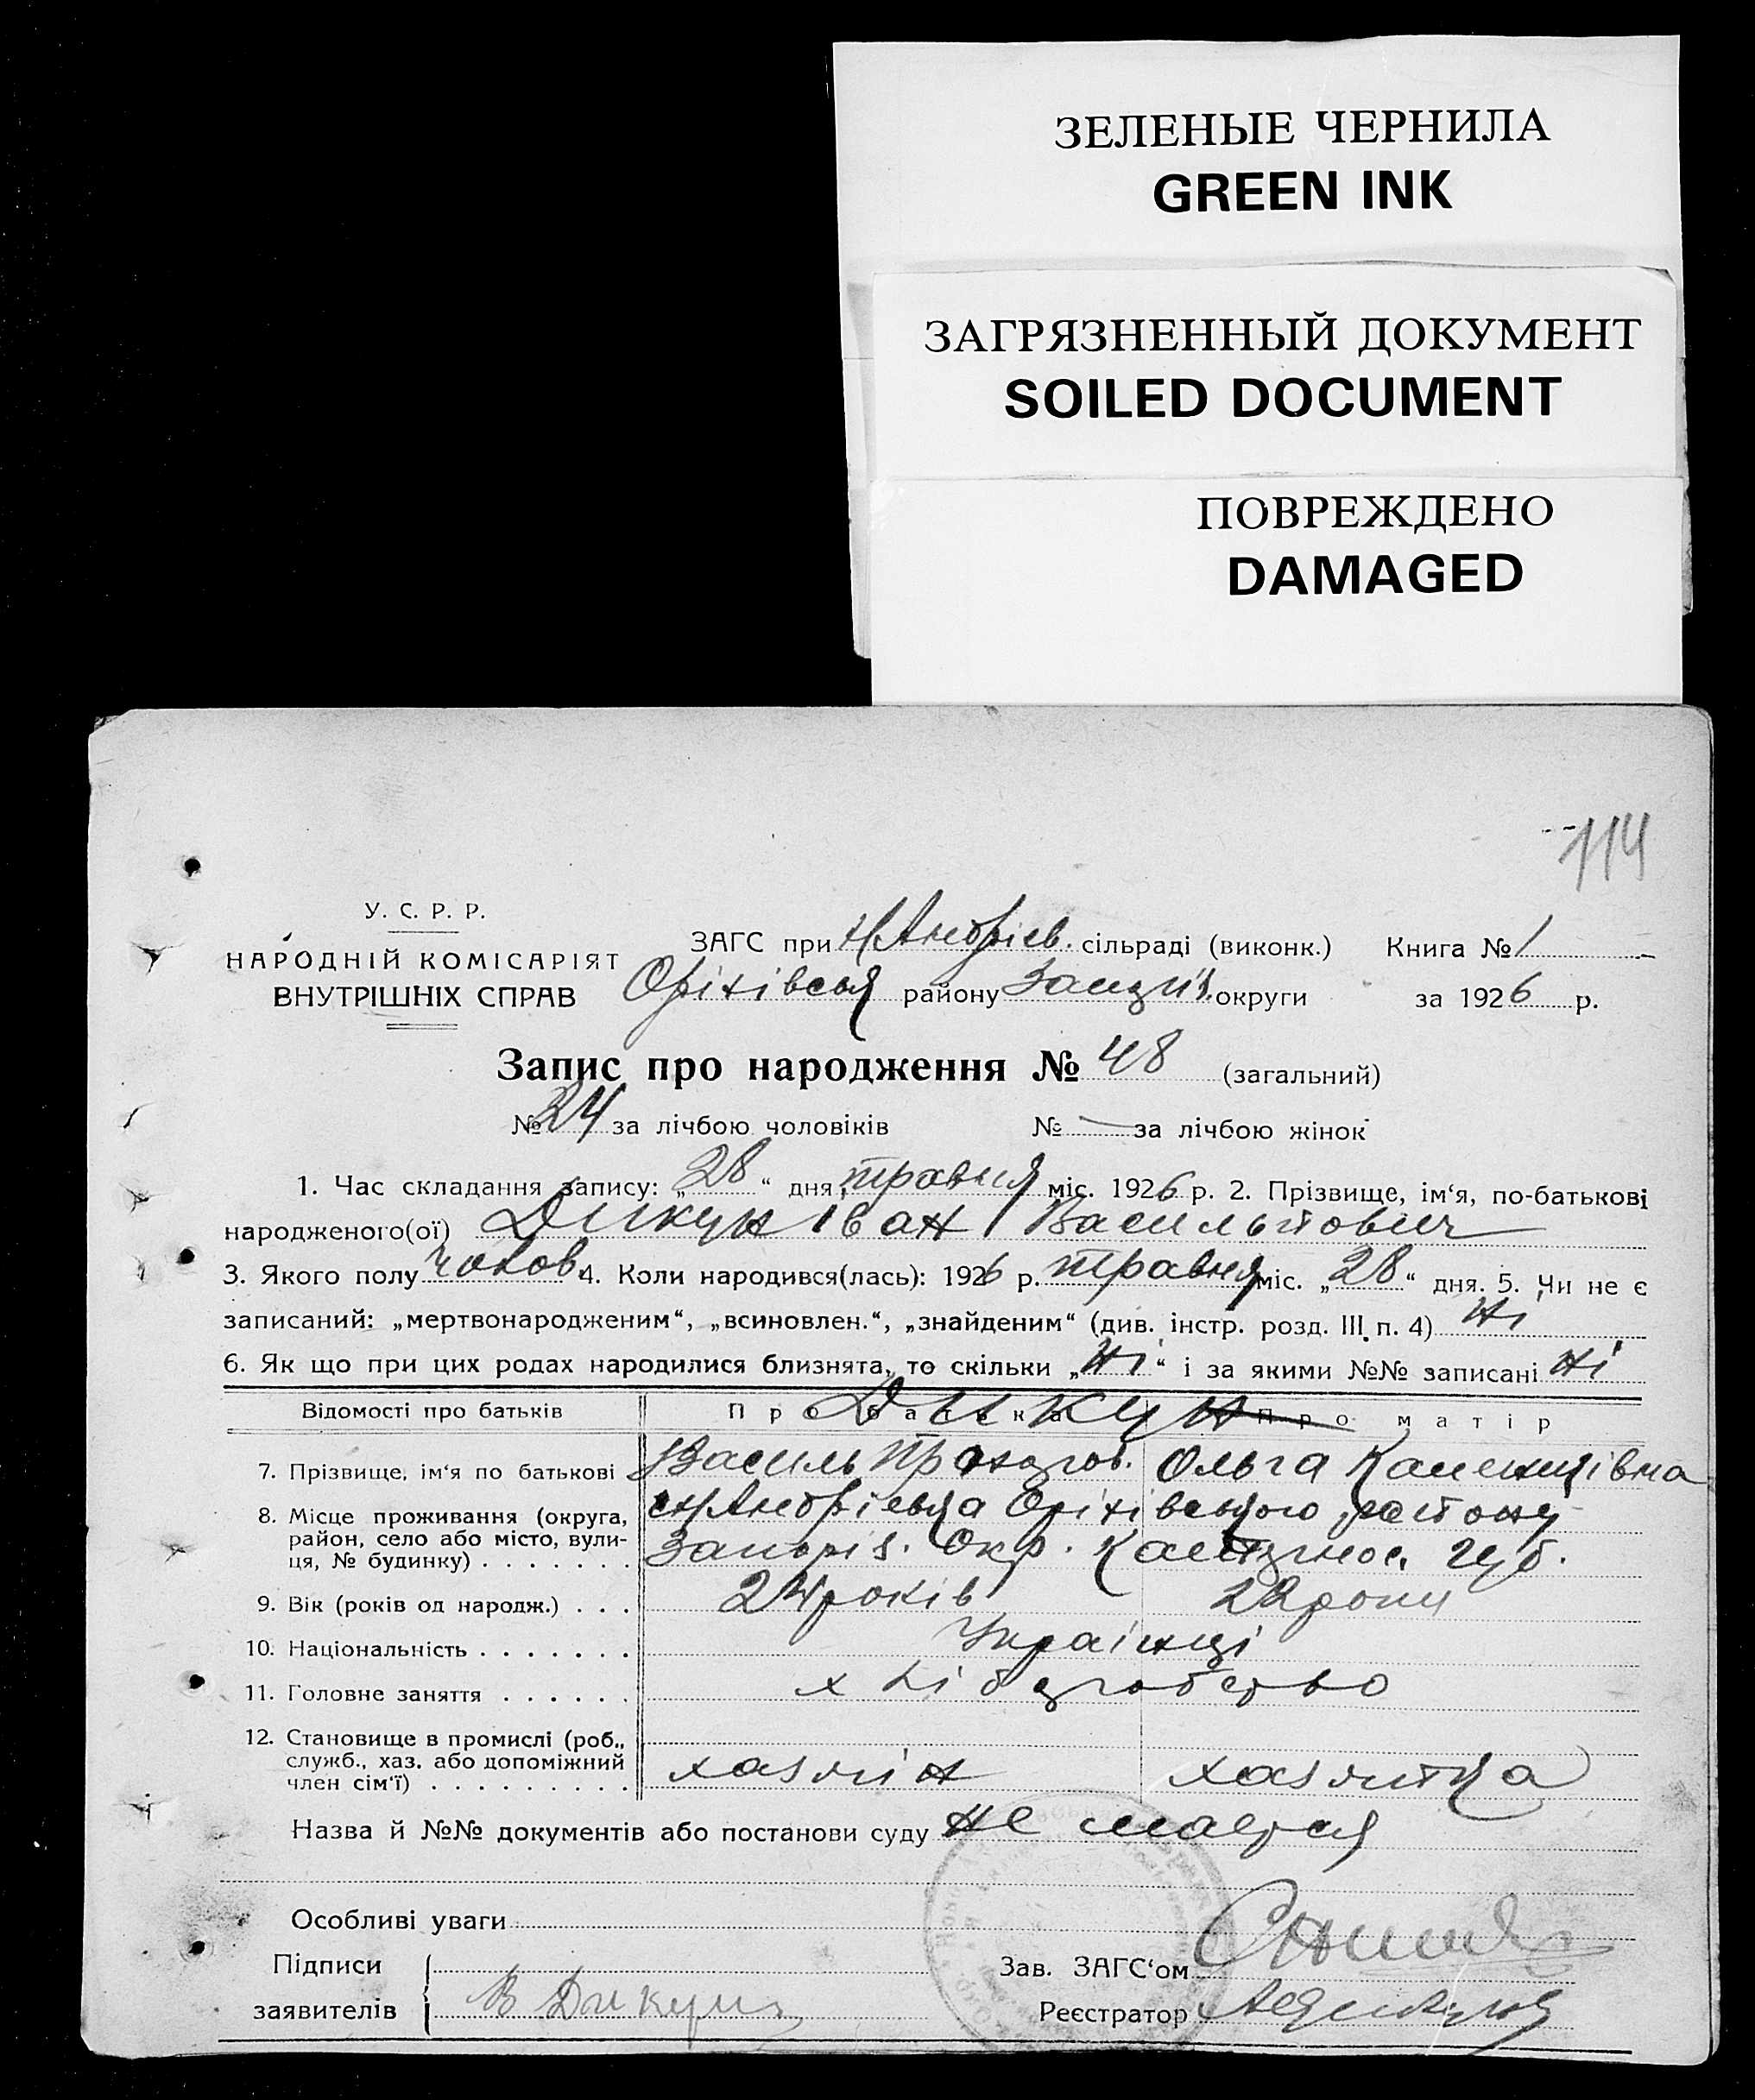 ЗЕЛЕНЫЕ ЧЕРНИЛА
GREEN INK
ЗАГРЯЗНЕННЫЙ ДОКУМЕНТ
SOILED DOCUMENT
ПОВРЕЖДЕНО
DAMAGED
114
У. С. Р. Р.
НАРОДНІЙ КОМІСАРІЯТ
ВНУТРІШНІХ СПРАВ
ЗАГС при Н/Андрієв. сільраді (виконк.) Книга № 1
району округи за 1926 р.
Запис про народження № 48 (загальний)
№ 24 за лічбою чоловіків № — за лічбою жінок
1. Час складання запису: „28“ дня травня міс. 1926 р. 2. Прізвище, ім‘я, по-батькові
народженого(ої) Дикун Іван Васильтович
3. Якого полу чолов. 4. Коли народився(лась): 1926 р. травня міс. „28“ дня. 5. Чи не є
записаний: „мертвонародженим“, „всиновлен.“, „знайденим“ (див. інстр. розд. III п. 4) Ні
6. Як що при цих родах народилися близнята, то скільки „Ні“ і за якими №№ записані Ні
Відомості про батьків Про батька Дикун Про матір
7. Прізвище, ім‘я по батькові Василь Ольга
8. Місце проживання (округа, район, село або місто, вулиця, № будинку) . . . . . . .
Запоріз. Окр. губ.
9. Вік (років од народж.) . . . 24 років 22 роки
10. Національність . . . . . . . Українці
11. Головне заняття . . . . . . хліборобство
12. Становище в промислі (роб., служб., хаз. або допоміжний член сім‘ї) . . . . . . . . . хазяїн хазяйка
Назва й №№ документів або постанови суду не мается
Особливі уваги
Підписи
заявителів В Дикун
Зав. ЗАГС‘ом
Реєстратор